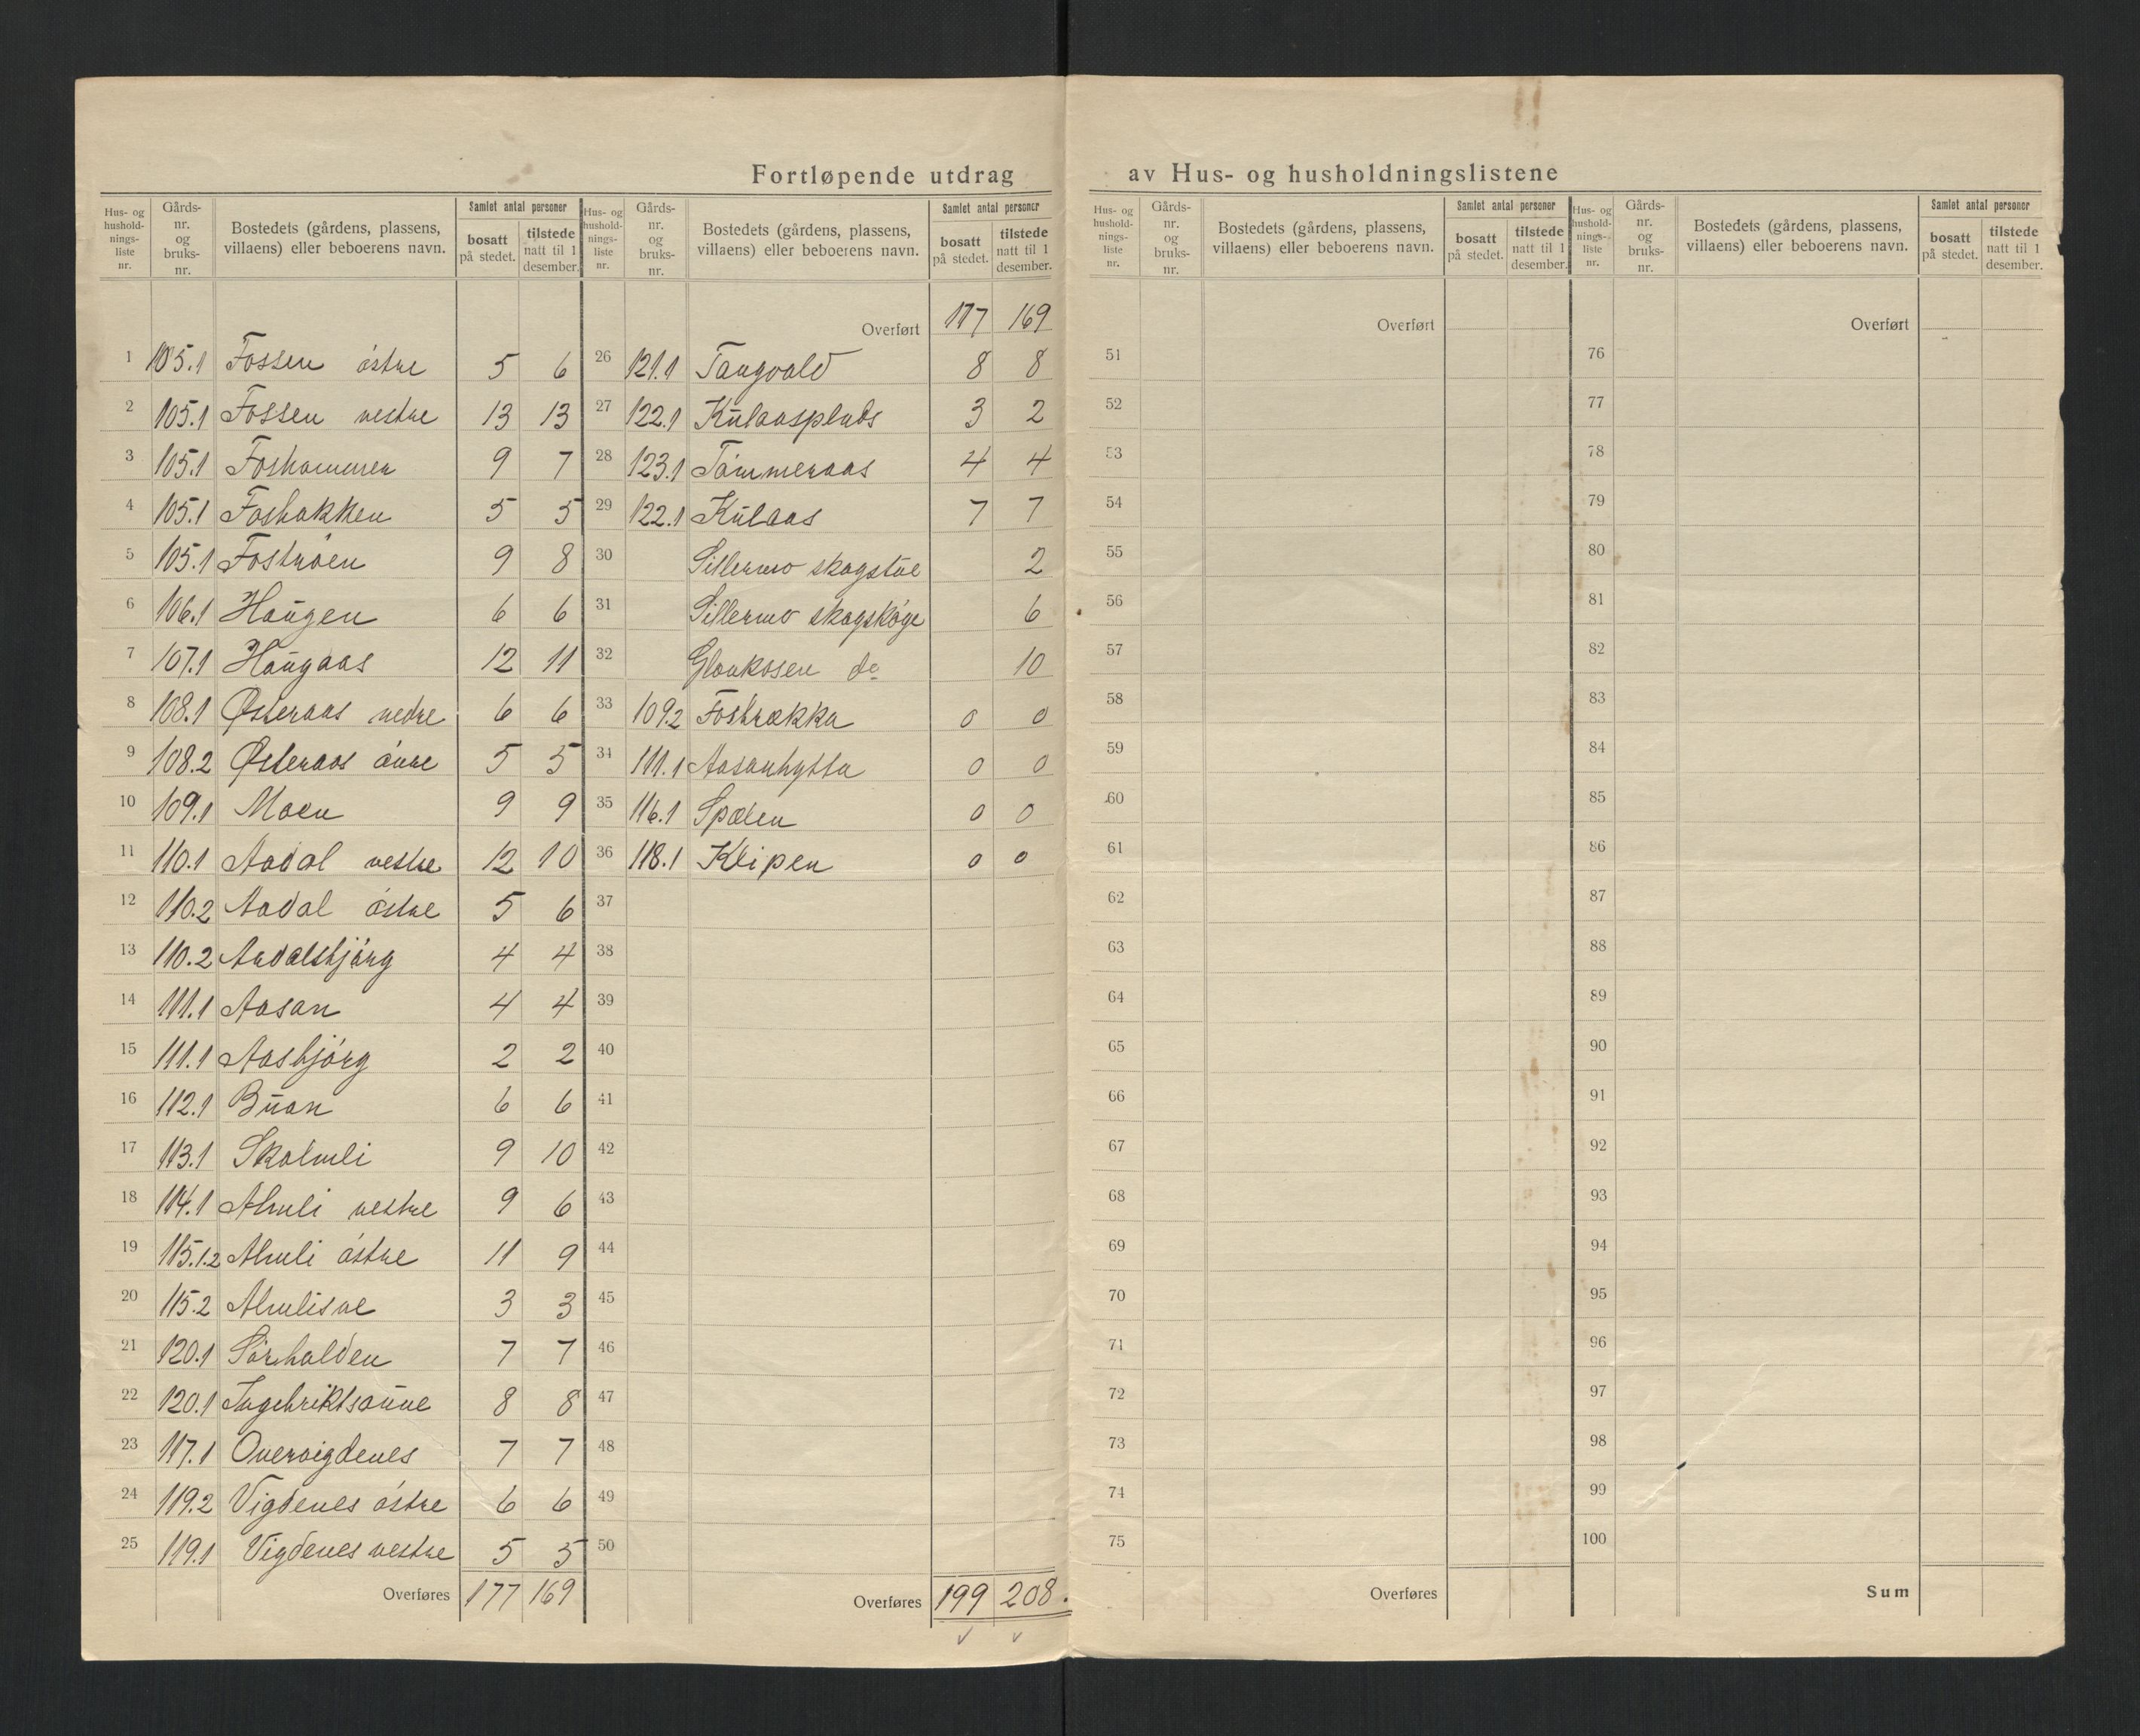 Fortløpende utdrag av Hus- og husholdningslistene
Hus- og hushold- nings- liste nr. Gårds- nr. og bruks- nr. Bostedets (gårdens, plassens, villaens) eller beboerens navn. Samlet antal personer bosatt på stedet. tilstede natt til 1 desember.
1 105.1 Fossen östre 5 6
2 105.1 Fossen vestre 13 13
3 105.1 Foshammer 9 7
4 105.1 Fosbakken 5 5
5 105.1 Foströen 9 8
6 106.1 Haugen 6 6
7 107.1 Haugaas 12 11
8 108.1 Østeraas nedre 6 6
9 108.2 Østeraas övre 5 5
10 109.1 Moen 9 9
11 110.1 Aadal vestre 12 10
12 110.2 Aadal östre 5 6
13 110.2 Aadalsbjörg 4 4
14 111.1 Aasan 4 4
15 111.1 Aasbjörg 2 2
16 112.1 Buan 6 6
17 113.1 Skalmli 9 10
18 114.1 Almli vestre 9 6
19 115.1.2 Almli östre 11 9
20 115.2 Almlisve 3 3
21 120.1 Sörhalden 7 7
22 120.1 Ingebriktsaune 8 8
23 117.1 Overvigdenes 7 7
24 119.2 Vigdenes östre 6 6
25 119.1 Vigdenes vestre 5 5
Overføres 177 169
Hus- og hushold- nings- liste nr. Gårds- nr. og bruks- nr. Bostedets (gårdens, plassens, villaens) eller beboerens navn. Samlet antal personer bosatt på stedet. tilstede natt til 1 desember.
Overført 177 169
26 121.1 Tangvald 8 8
27 122.1 Kulaasplads 3 2
28 123.1 Tömmeraas 4 4
29 122.1 Kulaas 7 7
30 Sillermo skogstue 2
31 Sillermo skogskoge 6
32 Glaukosen do 10
33 109.2 Fosbrækka 0 0
34 111.1 Aasanhytta 0 0
35 116.1 Spælen 0 0
36 118.1 Kleipen 0 0
37
38
39
40
41
42
43
44
45
46
47
48
49
50
Overføres 199 208.
Hus- og hushold- nings- liste nr. Gårds- nr. og bruks- nr. Bostedets (gårdens, plassens, villaens) eller beboerens navn. Samlet antal personer bosatt på stedet. tilstede natt til 1 desember.
Overført
51
52
53
54
55
56
57
58
59
60
61
62
63
64
65
66
67
68
69
70
71
72
73
74
75
Overføres
Hus- og hushold- nings- liste nr. Gårds- nr. og bruks- nr. Bostedets (gårdens, plassens, villaens) eller beboerens navn. Samlet antal personer bosatt på stedet. tilstede natt til 1 desember.
Overført
76
77
78
79
80
81
82
83
84
85
86
87
88
89
90
91
92
93
94
95
96
97
98
99
100
Sum